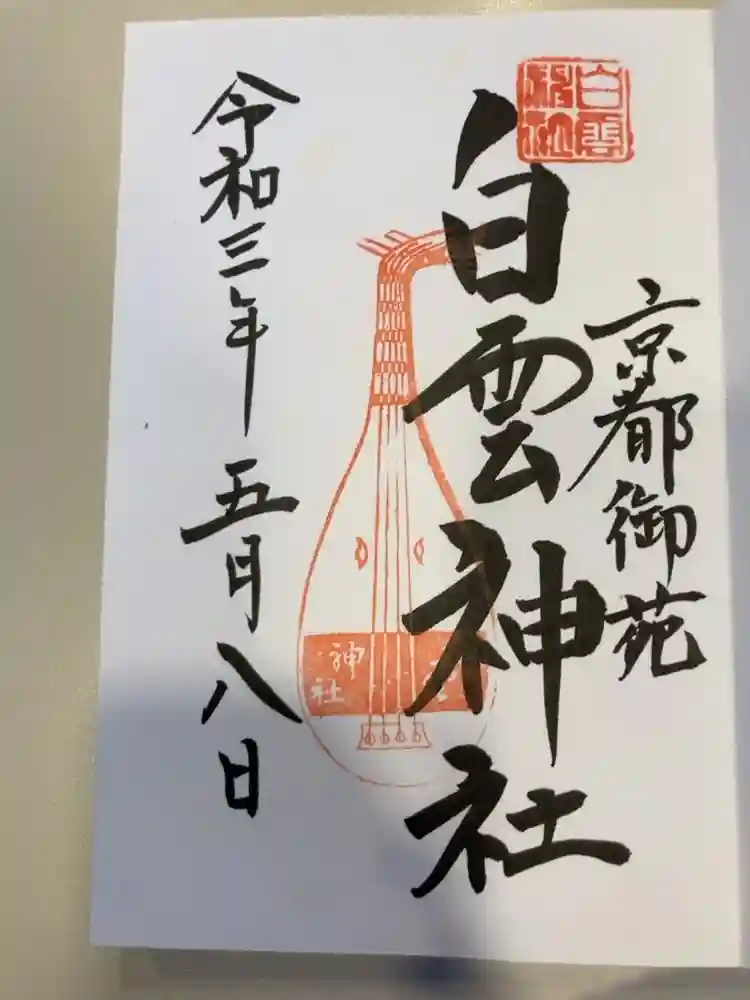 京都御苑
白雲神社
白雲
神社
神社
令和三年五月八日